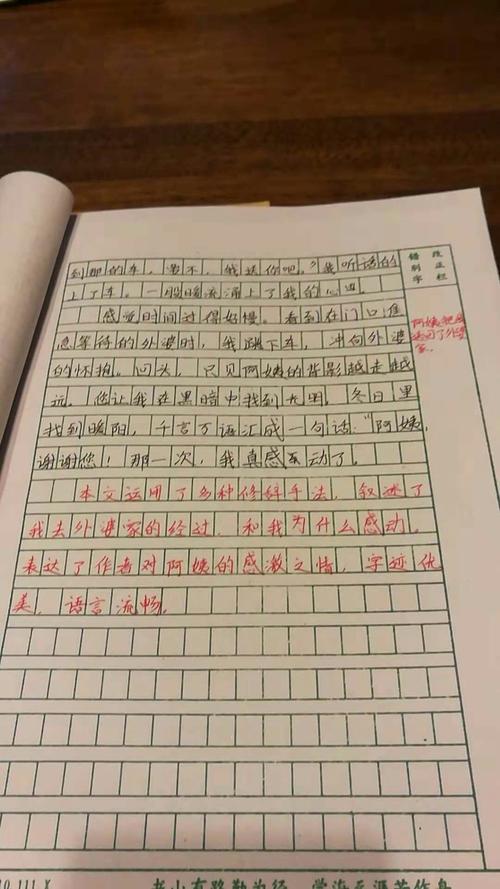 到那的车，要不，我送你吧。”我听话的
上了车。一股暖流涌上了我的心边。
感觉时间过得好慢。看到在门口准
急等待的外婆时，我跳下车，冲向外婆
的怀抱。回头，只见阿姨的背影越走越
远。您让我在黑暗中找到光明，冬日里
找到暖阳，千言万语汇成一句话：“阿姨，
谢谢您！那一次，我真感动了。
本文运用了多种修辞手法，叙述了
我去外婆家的经过，和我为什么感动。
表达了作者对阿姨的感激之情，字迹优
美，语言流畅。
错别字
改正栏
阿姨把我
送回了外婆
家。
书山有路勤为径 学海无涯苦作舟